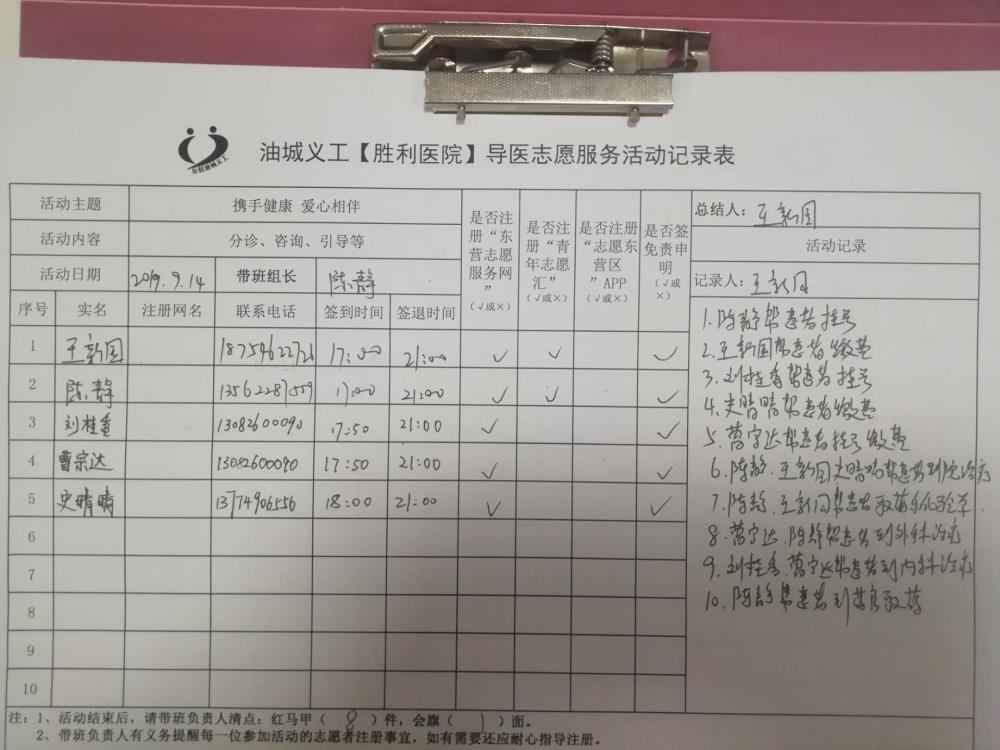 东营油城义工
油城义工【胜利医院】导医志愿服务活动记录表
活动主题 携手健康 爱心相伴
活动内容 分诊、咨询、引导等
活动日期 2019.9.14 带班组长 陈静
序号 实名 注册网名 联系电话 签到时间 签退时间 是否注册“东营志愿服务网”（√或×） 是否注册“青年志愿汇”（√或×） 是否注册“志愿东营区”APP（√或×） 是否签免责申明（√或×）
1 王新国 18754622726 17:00 21:00 √ √ √
2 陈静 13562287559 17:00 21:00 √ √ √
3 刘桂香 13082600090 17:50 21:00 √ √
4 曹宗达 13082600090 17:50 21:00 √ √
5 史晴晴 13774906556 18:00 21:00 √ √
6
7
8
9
10
总结人：王新国
活动记录
记录人：王新国
1.陈静帮患者挂号
2.王新国帮患者缴费
3.刘桂香帮患者挂号
4.史晴晴帮患者缴费
5.曹宗达帮患者挂号缴费
6.陈静.王新国史晴晴帮患者到院治疗
7.陈静.王新国帮患者取药和化验单
8.曹宗达.陈静帮患者到外科治疗
9.刘桂香.曹宗达帮患者到内科治疗
10.陈静帮患者到药房取药
注：1、活动结束后，请带班负责人清点：红马甲（ 8 ）件，会旗（ 1 ）面。
2、带班负责人有义务提醒每一位参加活动的志愿者注册事宜，如有需要还应耐心指导注册。